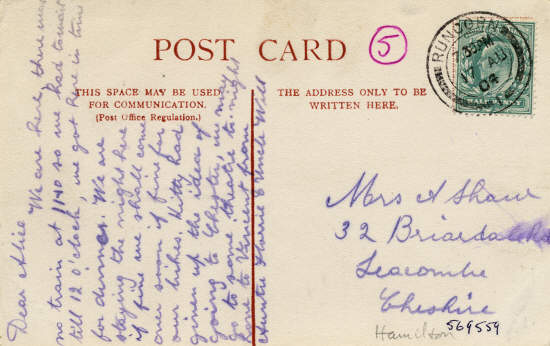 POST CARD
5
THIS SPACE MAY BE USED
FOR COMMUNICATION.
(Post Office Regulation.)
THE ADDRESS ONLY TO BE
WRITTEN HERE.
RUNCORN
17 AU
HALFPENNY
Dear Alice We are here, there was
no train at 1140 so we had to wait
till 12 o'clock, we got here in time
for dinner. We are
staying the night here
if fine we shall come
over soon if fine for
our bikes. Kitty had
given up the idea of
going to Chester, in
go to some theatre to-night
love to Vincent from
Auntie & Uncle Will
Mrs A Shaw
32
Seacombe
Cheshire
Hamilton
569559